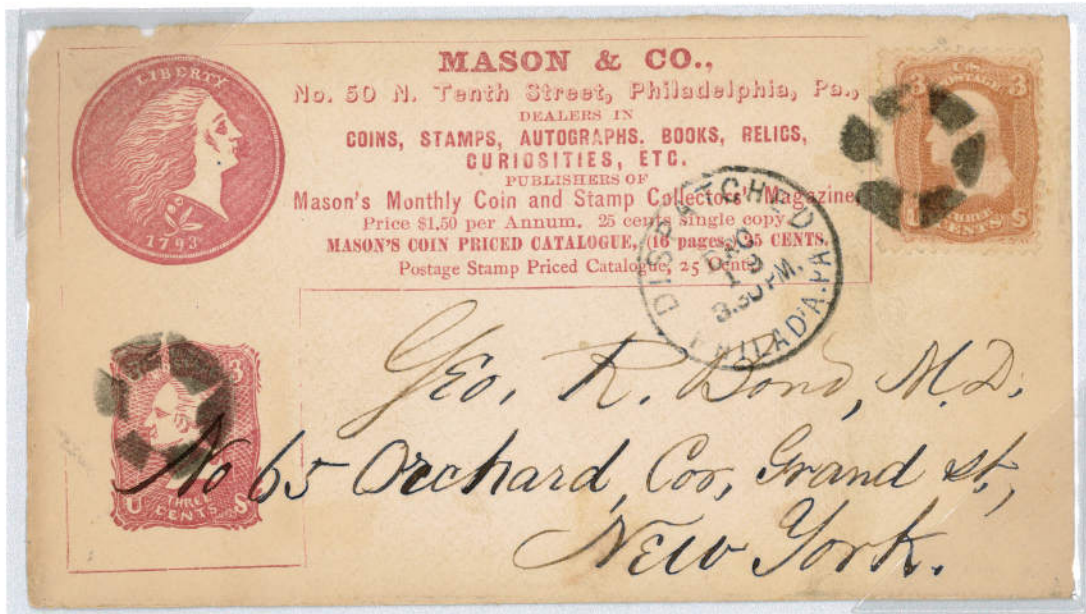 MASON & CO.,
No. 50 N. Tenth Street, Philadelphia, Pa.,
DEALERS IN
COINS, STAMPS, AUTOGRAPHS. BOOKS, RELICS,
CURIOSITIES, ETC.
PUBLISHERS OF
Mason's Monthly Coin and Stamp Collectors' Magazine
Price $1,50 per Annum. 25 cents single copy
MASON'S COIN PRICED CATALOGUE, (16 pages,) 25 CENTS.
Postage Stamp Priced Catalogue, 25 Cents
LIBERTY
1793
3 U.S. POSTAGE 3
U THREE CENTS S
DISPATCHED
19
3.30 PM.
PHILAD'A.PA
3
U THREE CENTS S
Geo. R. Bond, M.D.
No 65 Orchard, Cor, Grand st,
New York.